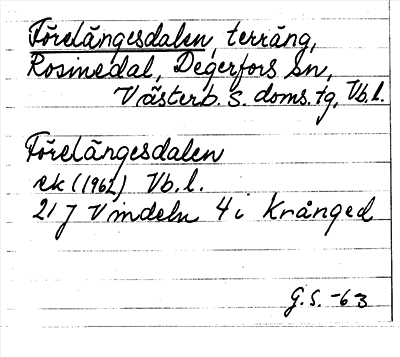 Förelängesdalen, terräng,
Rosinedal, Degerfors sn,
Västerb. s. doms. tg, Vb. l.
Förelängesdalen
ek (1961) Vb. l.
21 J Vindeln 4 i Krånged
G. S. -63